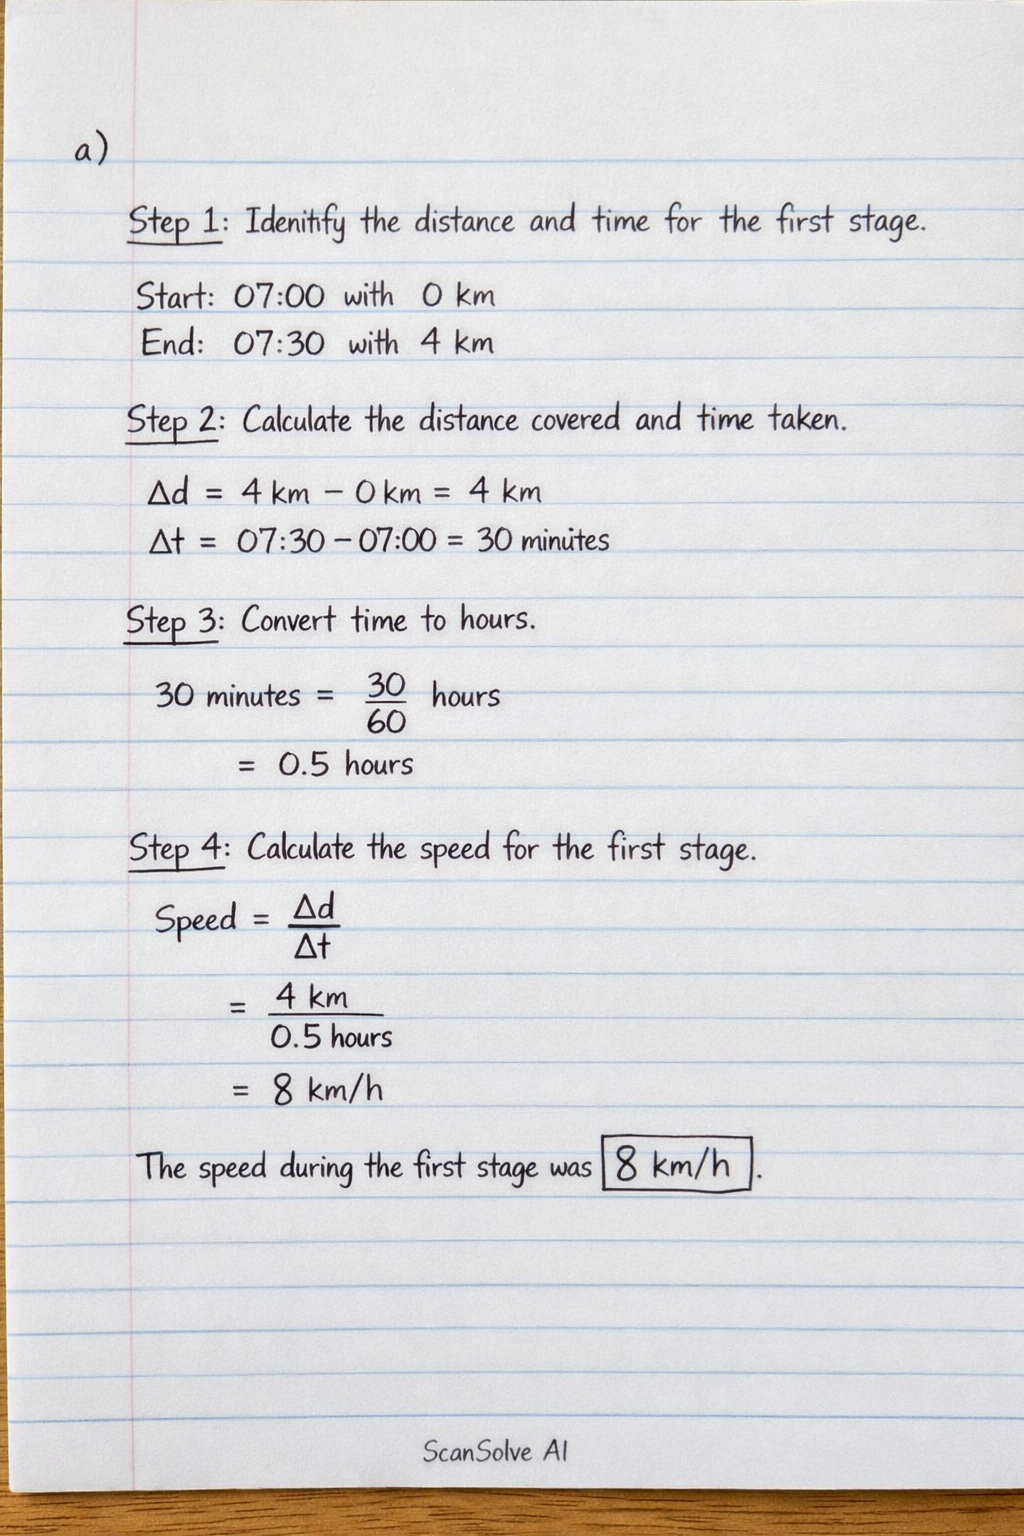 a)
Step 1: Idenitify the distance and time for the first stage.
Start: 07:00 with 0 km
End: 07:30 with 4 km
Step 2: Calculate the distance covered and time taken.
Δd = 4 km − 0 km = 4 km
Δt = 07:30 − 07:00 = 30 minutes
Step 3: Convert time to hours.
30 minutes = 30/60 hours
= 0.5 hours
Step 4: Calculate the speed for the first stage.
Speed = Δd/Δt
= 4 km/0.5 hours
= 8 km/h
The speed during the first stage was 8 km/h.
ScanSolve AI